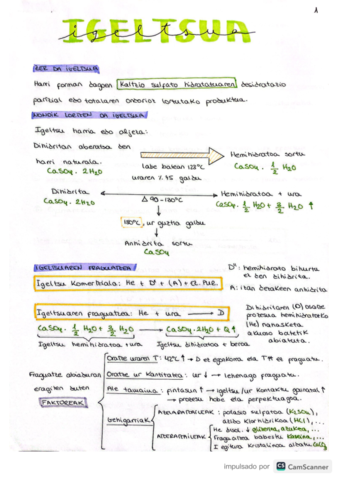 1
IGELTSUA
igeltsua
ZER DA IGELTSUA
Harri forman dagoen Kaltzio sulfato hidratatuaren deshidratazio
partzial edo totalaren ondorioz lortutako produktua.
NONDIK LORTZEN DA IGELTSUA/
Igeltsu harria edo aljeza:
Dihidritan aberatsa den
harri naturala.
CaSO4 · 2H2O
labe batean 128ºC
uraren %15 galdu
Hemihidratoa sortu
CaSO4 · 1/2 H2O
Dihidrita
CaSO4 · 2H2O
Δ 90-180ºC
Hemihidratoa + ura
CaSO4 · 1/2 H2O + 3/2 H2O ↑
180ºC, ur guztia galdu
Anhidrita sortu
CaSO4
IGELTSUAREN FRAGUATZEA/
Igeltsu Komertziala: He + D' + (A) +
D': hemihidratoa bihurtu
ez den dihidrita.
A: izan dezakeen anhidrita
Igeltsuaren fraguatzea: He + ura → D
CaSO4 · 1/2 H2O + 3/2 H2O → CaSO4 · 2H2O + Q↑
Igeltsu hemihidratoa + ura
Igeltsu dihidratoa + beroa
Dihidritaren (D) osade
prozesua hemihidratoko
(He) nahasketa
akuoso batetik
abiatuta.
Fraguatze abiaduran
eragiten duten
FAKTOREAK
Oratze uraren T: 42ºC ↑ → D ez egonkorra eta T↑ ez fraguatu.
Oratze ur kantitatea: ur ↓ → lehenago fraguatu.
Ale tamaina: fintasun ↑ → igeltsu/ur kontaktu gainazal ↑
→ prozesu hobe eta perfektuagoa.
Gehigarriak
AZELERATZAILEAK: potasio sulfatoa (K2SO4),
azido klorhidrikoa (HCl), ...
ATZERATZAILEAK
He disol. ↓ glizerina, azukrea, ...
Fraguatzea babestu keratina, ...
egitura kristalinoa aldatu
impulsado por CS CamScanner